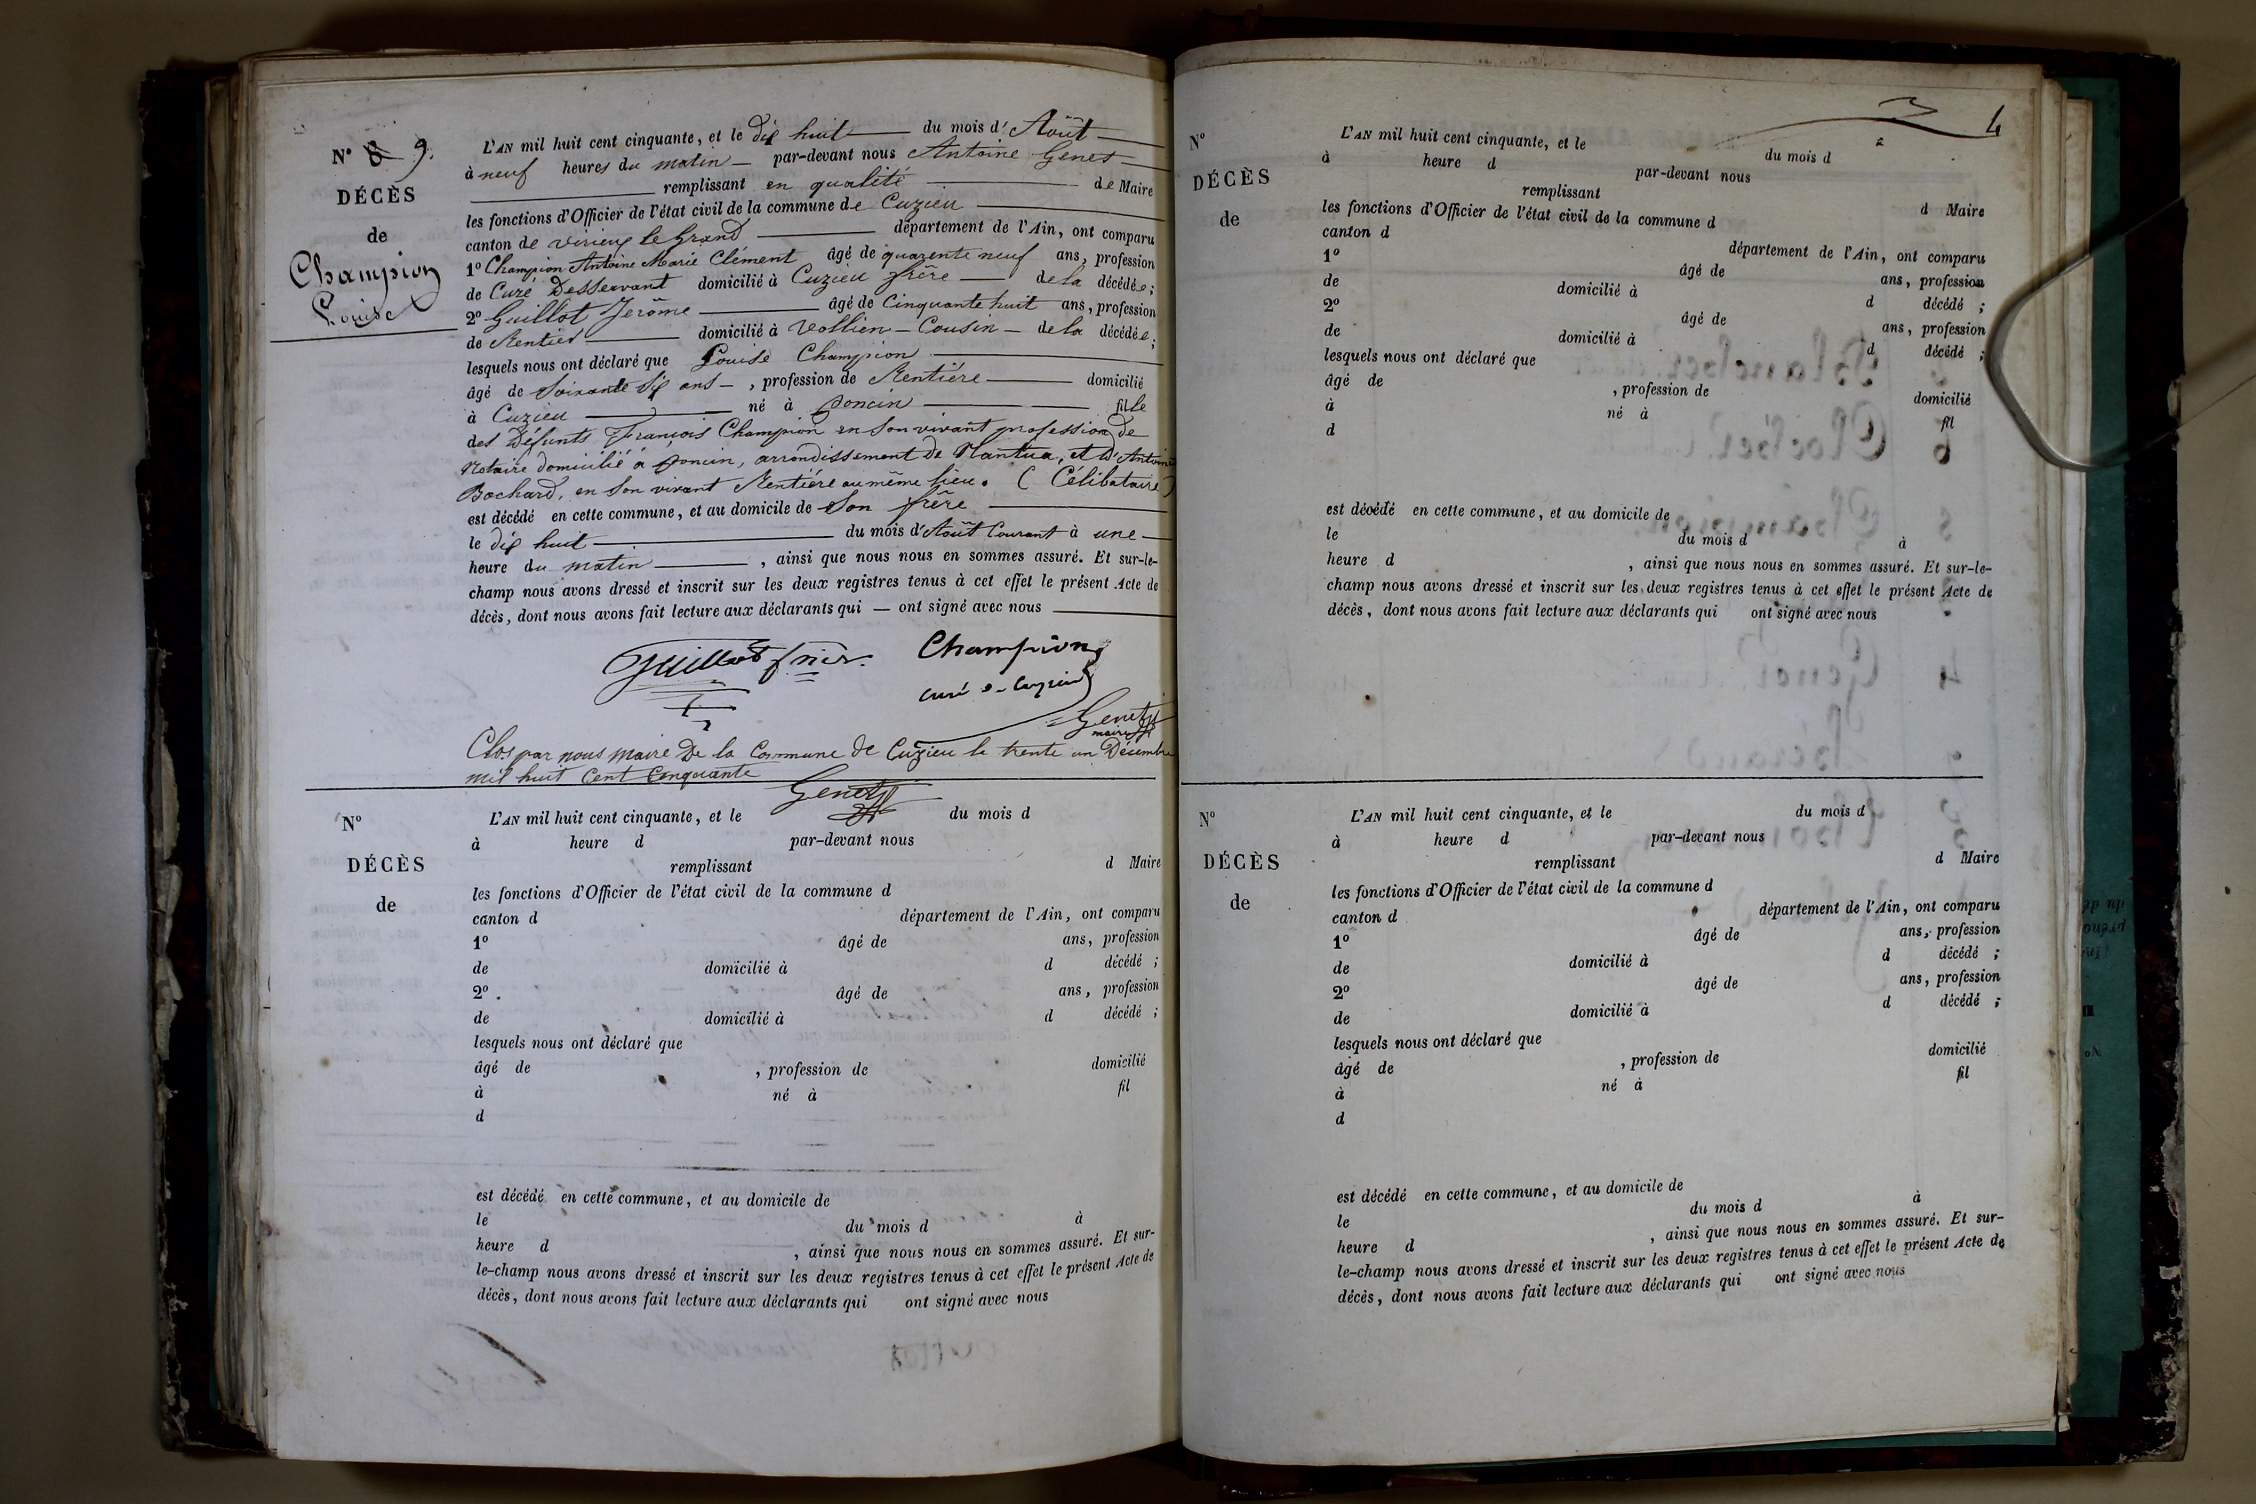 N° 8 9.
DÉCÈS
de
Champion
Louise
L'AN mil huit cent cinquante, et le dix huit du mois d' Août
à neuf heures du matin par-devant nous Antoine Genet
remplissant en qualité de Maire
les fonctions d'Officier de l'état civil de la commune de Cuzieu
canton de virieux le Grand département de l'Ain, ont comparu
1° Champion Antoine Marie Clément âgé de quarente neuf ans, profession
de Curé Desservant domicilié à Cuzieu frère de la décédée;
2° Guillot Jerôme âgé de Cinquante huit ans, profession
de Rentier domicilié à Vollien - Cousin - de la décédée;
lesquels nous ont déclaré que Louise Champion
âgé de Soixante Six ans , profession de Rentière domicilié
à Cuzieu né à poncin fille
des Défunts François Champion en Son vivant profession de
Notaire domicilié à poncin, arrondissement de Nantua, et d'Antoine
Bochard, en Son vivant Rentière au même lieu. (Célibataire)
est décédé en cette commune, et au domicile de Son frère
le dix huit du mois d'Août Courant à une
heure du matin , ainsi que nous nous en sommes assuré. Et sur-le-
champ nous avons dressé et inscrit sur les deux registres tenus à cet effet le présent Acte de
décès, dont nous avons fait lecture aux déclarants qui — ont signé avec nous
Guillot
Champion
curé
Genet
maire
Clos par nous Maire De la Commune de Cuzieu le trente un Décembre
mil huit Cent Cinquante
Genet
N°
DÉCÈS
de
L'AN mil huit cent cinquante, et le du mois d
à heure d par-devant nous
remplissant d Maire
les fonctions d'Officier de l'état civil de la commune d
canton d département de l'Ain, ont comparu
1° âgé de ans, profession
de domicilié à d décédé ;
2° âgé de ans, profession
de domicilié à d décédé ;
lesquels nous ont déclaré que
âgé de , profession de domicilié
à né à fil
d
est décédé en cette commune, et au domicile de
le du mois d à
heure d , ainsi que nous nous en sommes assuré. Et sur-
le-champ nous avons dressé et inscrit sur les deux registres tenus à cet effet le présent Acte de
décès, dont nous avons fait lecture aux déclarants qui ont signé avec nous
4
N°
DÉCÈS
de
L'AN mil huit cent cinquante, et le du mois d
à heure d par-devant nous
remplissant d Maire
les fonctions d'Officier de l'état civil de la commune d
canton d département de l'Ain, ont comparu
1° âgé de ans, profession
de domicilié à d décédé ;
2° âgé de ans, profession
de domicilié à d décédé ;
lesquels nous ont déclaré que
âgé de , profession de domicilié
à né à fil
d
est décédé en cette commune, et au domicile de
le du mois d à
heure d , ainsi que nous nous en sommes assuré. Et sur-le-
champ nous avons dressé et inscrit sur les deux registres tenus à cet effet le présent Acte de
décès, dont nous avons fait lecture aux déclarants qui ont signé avec nous
N°
DÉCÈS
de
L'AN mil huit cent cinquante, et le du mois d
à heure d par-devant nous
remplissant d Maire
les fonctions d'Officier de l'état civil de la commune d
canton d département de l'Ain, ont comparu
1° âgé de ans, profession
de domicilié à d décédé ;
2° âgé de ans, profession
de domicilié à d décédé ;
lesquels nous ont déclaré que
âgé de , profession de domicilié
à né à fil
d
est décédé en cette commune, et au domicile de
le du mois d à
heure d , ainsi que nous nous en sommes assuré. Et sur-
le-champ nous avons dressé et inscrit sur les deux registres tenus à cet effet le présent Acte de
décès, dont nous avons fait lecture aux déclarants qui ont signé avec nous